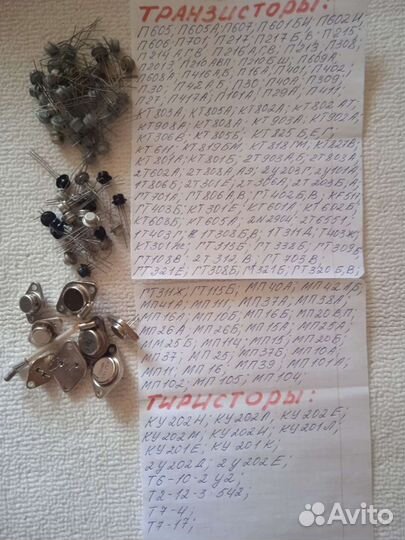 ТРАНЗИСТОРЫ:
П605, П605А; П607, П601БИ, П602И,
П606, П701, П214, П217Б,В; П215;
П214,А,Б,В, П216АГВ; П213, П308;
П201Э; П210АВП, П210БШ; П609А;
П608А, П416АБ, П16А; П401, П402;
П30; П42АБ, П30, П40А; П309;
П27; П417А; П101А; П29А; П411;
КТ803А; КТ805А; КТ802А; КТ802АТ;
КТ908А; КТ808А; КТ903А; КТ902А;
КТ706В; КТ805Б; КТ825Б,Е,Г;
КТ611; КТ819БМ; КТ818ГМ; КТ827В;
КТ801А; КТ801Б; 2Т903АБ; 2Т803А;
2Т602А; 2Т808А,АЭ; 2У203Г; 2У101А;
1Т806Б; 2Т301Е; 2Т306А; 2Т203Б,А;
ГТ701А; ГТ806АВ; ГТ402БВ; КТ511
ГТ403Б; КТ301Е; КТ601А; КТ602Б
КТ608Б; КТ605А; 2N2904; 2Т6551;
ГТ403Г; 1Т308БВ; 1Т311Д; ГТ403Ж;
КТ301Ж; ГТ313Б; ГТ338Б; ГТ309Б
ГТ108В; 2Т312В; ГТ703В;
ГТ321Е; ГТ308Б; ГТ321Б; ГТ320Б,В;
ГТ311Ж, ГТ115Б; МП40А; МП42АБ,
МП41А; МП111; МП37А; МП38А;
МП16А; МП10Б; МП16Б; МП20ВП;
МП26А; МП26Б; МП15А; МП25А;
МП25Б; МП114; МП15; МП20Б;
МП37; МП25; МП37Б; МП10А;
МП11; МП16; МП39; МП101А;
МП102; МП105; МП104;
ТИРИСТОРЫ:
КУ202Н; КУ202Л, КУ202Е;
КУ202М; КУ202И; КУ201Л;
КУ201Е; КУ201К;
2У202Д; 2У202Е;
Т6-10-2У2;
Т2-12-3 542;
Т7-4;
Т7-17;
Avito